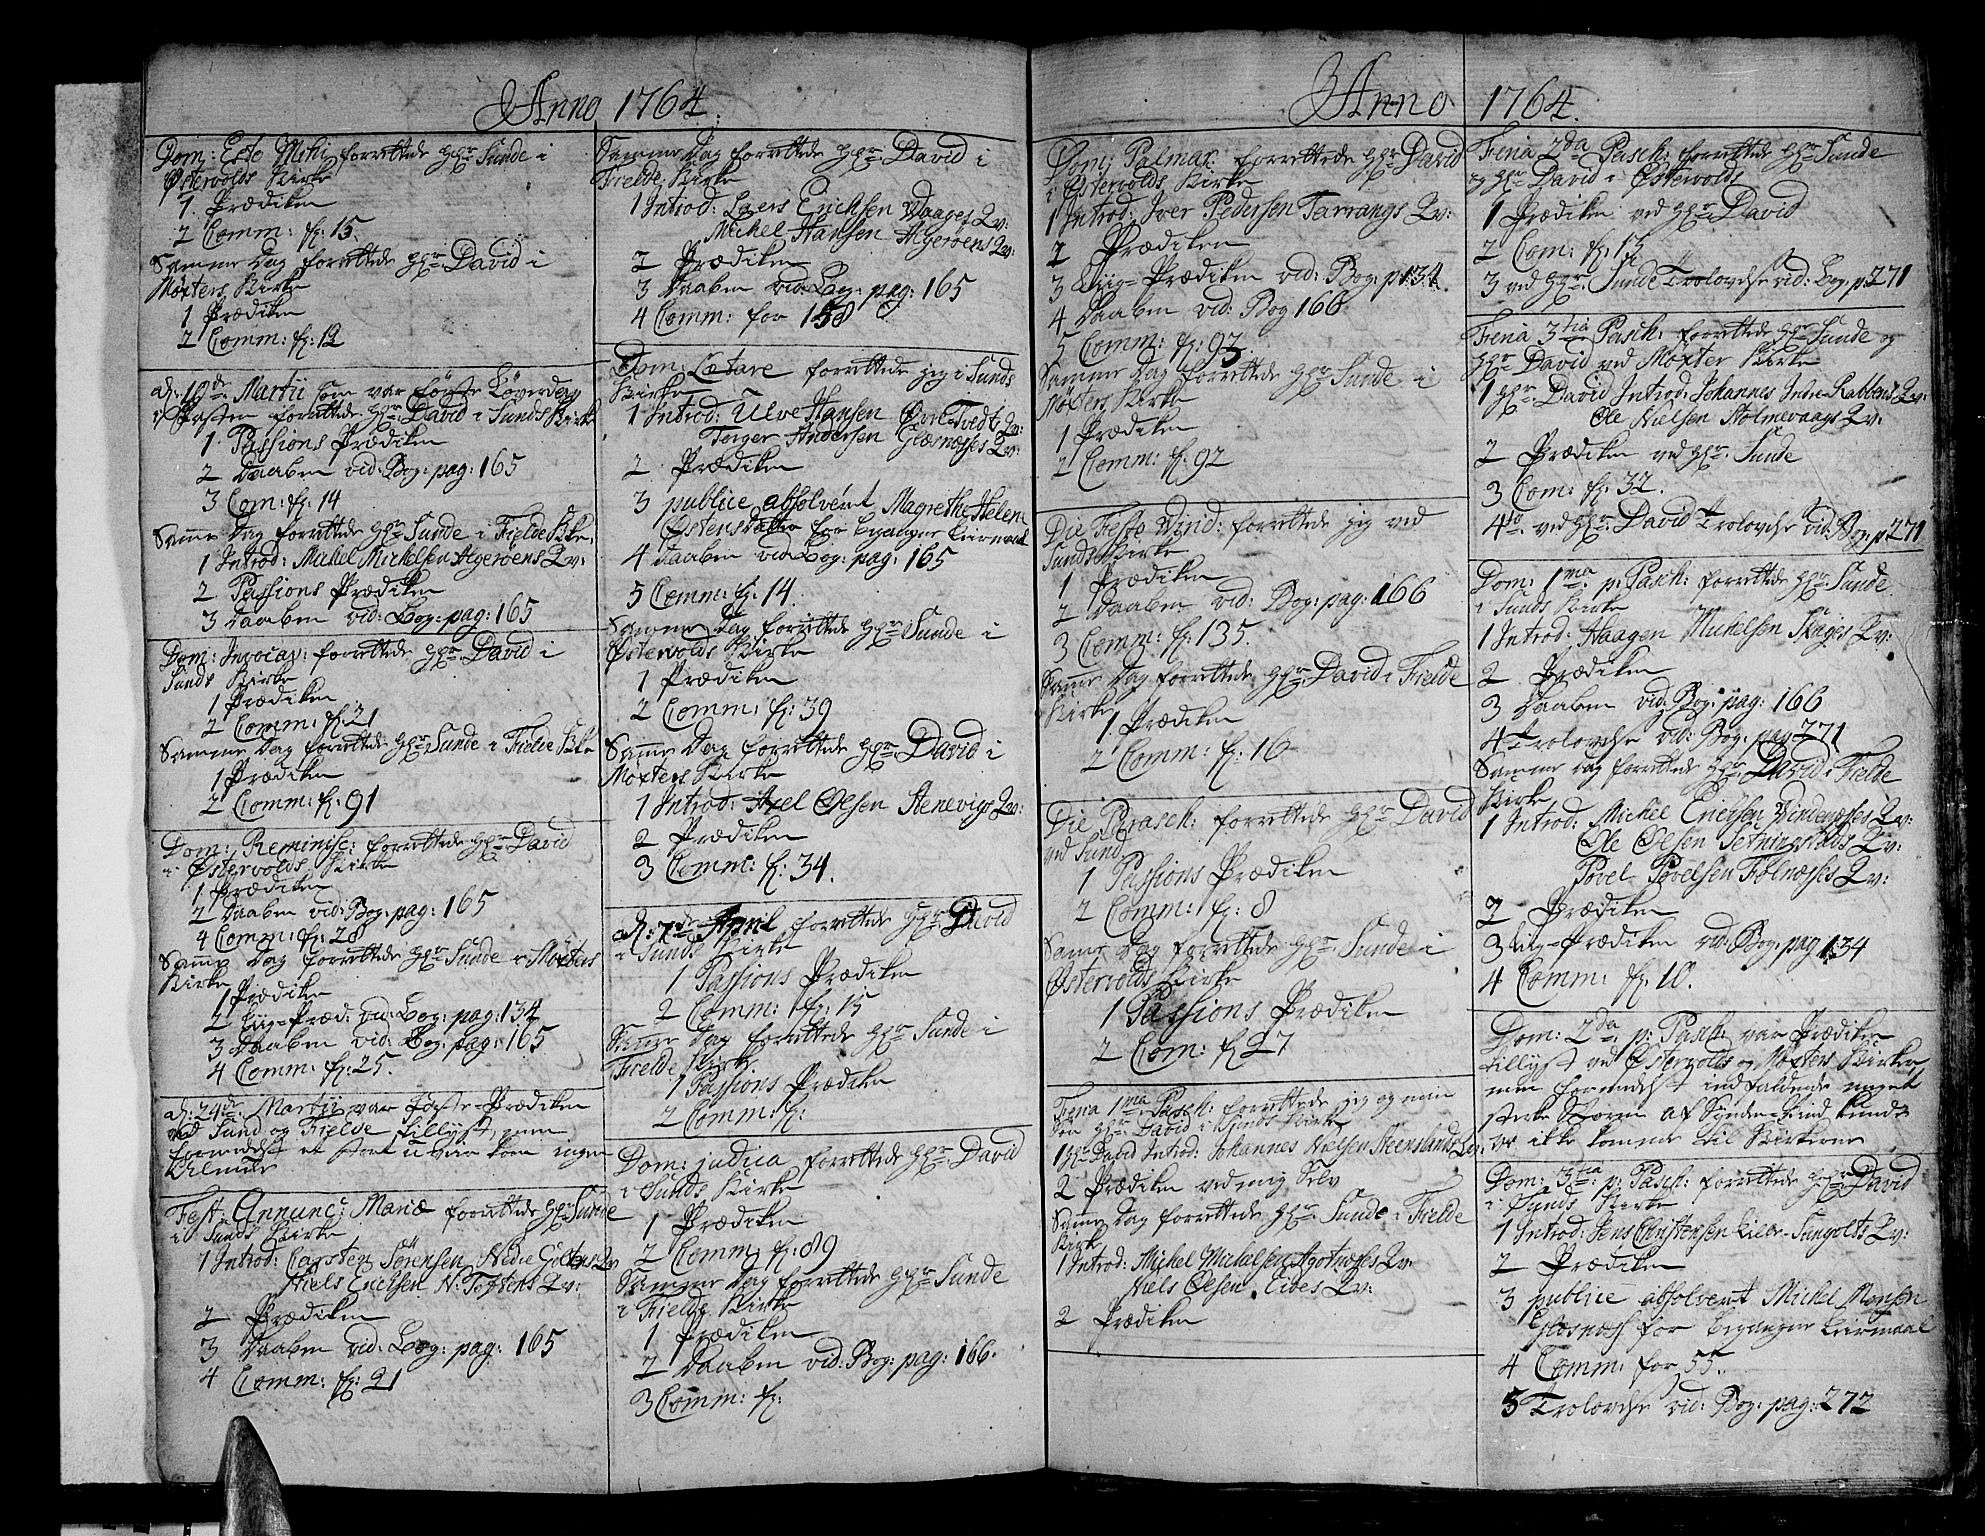 Anno 1764.
Dom: Esto Mihi forrettede Hr Sunde i
Østervolds Kirke
1 Prædiken
2 Comm: f: 15.
Samme Dag forrettede Hr David i
Møxters Kirke
1 Prædiken
2 Comm: f: 12
Martii som var første Løverdag
i Fasten forrettede Hr David i Sunds Kirke
1 Passions Prædiken
2 Daaben vid: Bog: pag: 165
3 Com: f: 14
Samme Dag forrettede Hr Sunde i Fielde Kke.
1 Introd: Mickel Mickelsen Algerøens Qv:
2 Passions Prædiken
3 Daaben vid: Bog: pag: 165
Dom: Invocav: forrettede Hr David i
Sunds Kirke
1 Prædiken
2 Comm: f: 21
Samme Dag forrettede Hr Sunde i Fielde Kke
1 Prædiken
2 Comm: f: 91
Dom: Reminisc: forrettede Hr David
i Østervolds Kirke
1 Prædiken
2 Daaben vid: Bog: pag: 165
4 Comm: f: 28
Samme Dag forrettede Hr Sunde i Møxters
Kirke
1 Prædiken
2 Liig-Præd: vid: Bog: pag: 134
3 Daaben vid: Bog: pag: 165
4 Comm: f: 25.
d: 24de Martii var Faste-Prædiken
ved Sund og Fielde tillyst, men
formedelst et stort u-vær kom ingen
Almue
Fest. Annunc: Mariæ forrettede Hr Sunde
i Sunds Kirke
1 Introd: Carsten Sørensen Nedre Golten Qv
Niels Erichsen N: Toftens Qv:
2 Prædiken
3 Daaben vid: Bog: pag: 165
4 Comm: f: 21
Samme Dag forrettede Hr David i
Fielde Kirke
1 Introd: Laers Erichsen Waages Qv:
Michel Hansen Algerøens Qv:
2 Prædiken
3 Daaben vid: Bog: pag: 165
4 Comm: for 158
Dom: Lætare forrettede jeg i Sunds
Kirke
1 Introd: Ulve Hansen Tvedts Qv:
Torger Andersen Glæsnæsses Qv:
2 Prædiken
3 publice absolvert Magrethe Helene
Østensdatter for begangen Leiermaal
4 Daaben vid: Bog: pag: 165
5 Comm: f: 14.
Samme Dag forrettede Hr Sunde i
Østervolds Kirke
1 Prædiken
2 Comm: f: 39
Samme Dag forrettede Hr David i
Møxters Kirke
1 Introd: Axel Olsen Stenevigs Qv:
2 Prædiken
3 Comm: f: 34.
d: 7de April forrettede Hr David
i Sunds Kirke
1 Passions Prædiken
2 Comm: f: 15
Samme Dag forrettede Hr Sunde i
Fielde Kirke
1 Passions Prædiken
2 Comm: f:
Dom: Judica forrettede Hr David
i Sunds Kirke
1 Prædiken
2 Comm: f: 89
Samme Dag forrettede Hr Sunde
i Fielde Kirke
1 Prædiken
2 Daaben vid: Bog: pag: 166.
3 Comm: f:
Anno 1764.
Dom: Palmar: forrettede Hr David
i Østervolds Kirke
1 Introd: Iver Pedersen Tarrangs Qv:
2 Prædiken
3 Liig-Prædiken vid: Bog: p: 134.
4 Daaben vid: Bog 166.
5 Comm: f: 92.
Samme Dag forrettede Hr Sunde i
Møxters Kirke
1 Prædiken
2 Comm: f: 92
Die Festo Virid: forrettede jeg ved
Sunds Kirke
1 Prædiken
2 Daaben vid: Bog: pag: 166
3 Comm: f: 135.
Samme Dag forrettede Hr David i Fielde
Kirke
1 Prædiken
2 Comm: f: 16
Die Parasc: forrettede Hr David
ved Sund
1 Passions Prædiken
2 Comm: f: 8
Samme Dag forrettede Hr Sunde i
Østervolds Kirke
1 Passions Prædiken
2 Com: f: 27
Feria 1ma Pasch: forrettede jeg og min
Søn Hr David i Sunds Kirke
1 Hr David Introd: Johannes Nielsen Steenslands Qv:
2 Prædiken ved mig Selv
Samme Dag forrettede Hr Sunde i Fielde
Kirke
1 Introd: Mickel Mickelsen Agotnæsses Qv
Niels Olsen Eides Qv:
2 Prædiken
Feria 2da Pasch: forrettede Hr Sunde
og Hr David i Østervolds
1 Prædiken ved Hr David
2 Com: f: 15
3 ved Hr Sunde Trolovelse vid: Bog: p: 271
Feria 3tia Pasch: forrettede Hr Sunde og
Hr David ved Møxter Kirke
1 Hr David Introd: Johannes Indre Rabbens Qv:
Ole Nielsen Stolmevaags Qv:
2 Prædiken ved Hr: Sunde
3 Com: f: 32.
4to ved Hr: David Trolovelse vid: Bog: p: 271
Dom: 1ma p: Pasch: forrettede Hr Sunde
i Sunds Kirke
1 Introd: Haagen Mickelsen Skages Qv:
2 Prædiken
3 Daaben vid: Bog: pag: 166
4 Trolovelse vid: Bog: pag 271
Samme Dag forrettede Hr David i Fielde
Kirke
1 Introd: Michel Erichsen Vindenæsses Qv:
Ole Olsen Qv:
Povel Povelsen Følnæsses Qv:
2 Prædiken
3 Liig-Prædiken vid: Bog: pag 134
4 Comm: f: 10.
Dom: 2da p: Pasch: var Prædiken
tillyst ved Østervolds og Møxters Kirker
men formedelst indfaldende meget
sterke Storm af Sønden-Vind kunde
vi ikke komme til Kirkerne
Dom: 3tia p: Pasch: forrettede Hr David
i Sunds Kirke
1 Introd: Jens Christensen Qv:
2 Prædiken
3 publice absolvert Mickel Monsen
Glesnæs for begangen Leiermaal
4 Comm: for 55.
5 Trolovelse vid: Bog: pag: 272